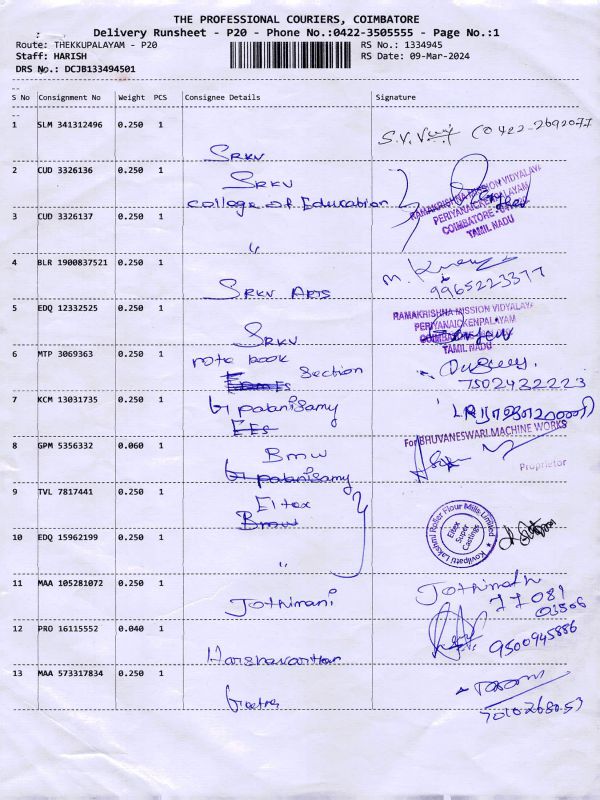 THE PROFESSIONAL COURIERS, COIMBATORE
Delivery Runsheet - P20 - Phone No.:0422-3505555 - Page No.:1
Route: THEKKUPALAYAM - P20 RS No.: 1334945
Staff: HARISH RS Date: 09-Mar-2024
DRS No.: DCJB133494501
S No Consignment No Weight PCS Consignee Details Signature
1 SLM 341312496 0.250 1
SRKV
2 CUD 3326136 0.250 1
SRKV
College of Education
RAMAKRISHNA MISSION VIDYALAYA
PERIYANAICKENPALAYAM
COIMBATORE
TAMIL NADU
3 CUD 3326137 0.250 1
"
4 BLR 1900837521 0.250 1
SRKV ARTS
9965223377
5 EDQ 12332525 0.250 1
SRKV
RAMAKRISHNA MISSION VIDYALAYA
PERIYANAICKENPALAYAM
TAMIL NADU
6 MTP 3069363 0.250 1
note book
Section
7502432223
7 KCM 13031735 0.250 1
G palanisamy
8 GPM 5356332 0.060 1
Bmw
G palanisamy
For BHUVANESWARI MACHINE WORKS
Proprietor
9 TVL 7817441 0.250 1
Eltex
Bmw
Kovilpatti Lakshmi Roller Flour Mills Limited
Eltex
Super
Castings
10 EDQ 15962199 0.250 1
"
11 MAA 105281072 0.250 1
Jothimani
Jothimath
77081
03506
12 PRO 16115552 0.040 1
Harshavarthan
9500945886
13 MAA 573317834 0.250 1
Geetha
7010268053